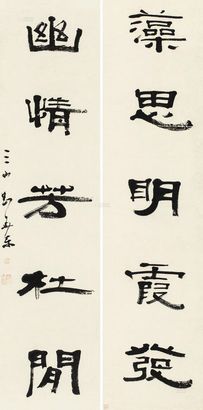 藻思明霞發
幽情芳杜閒